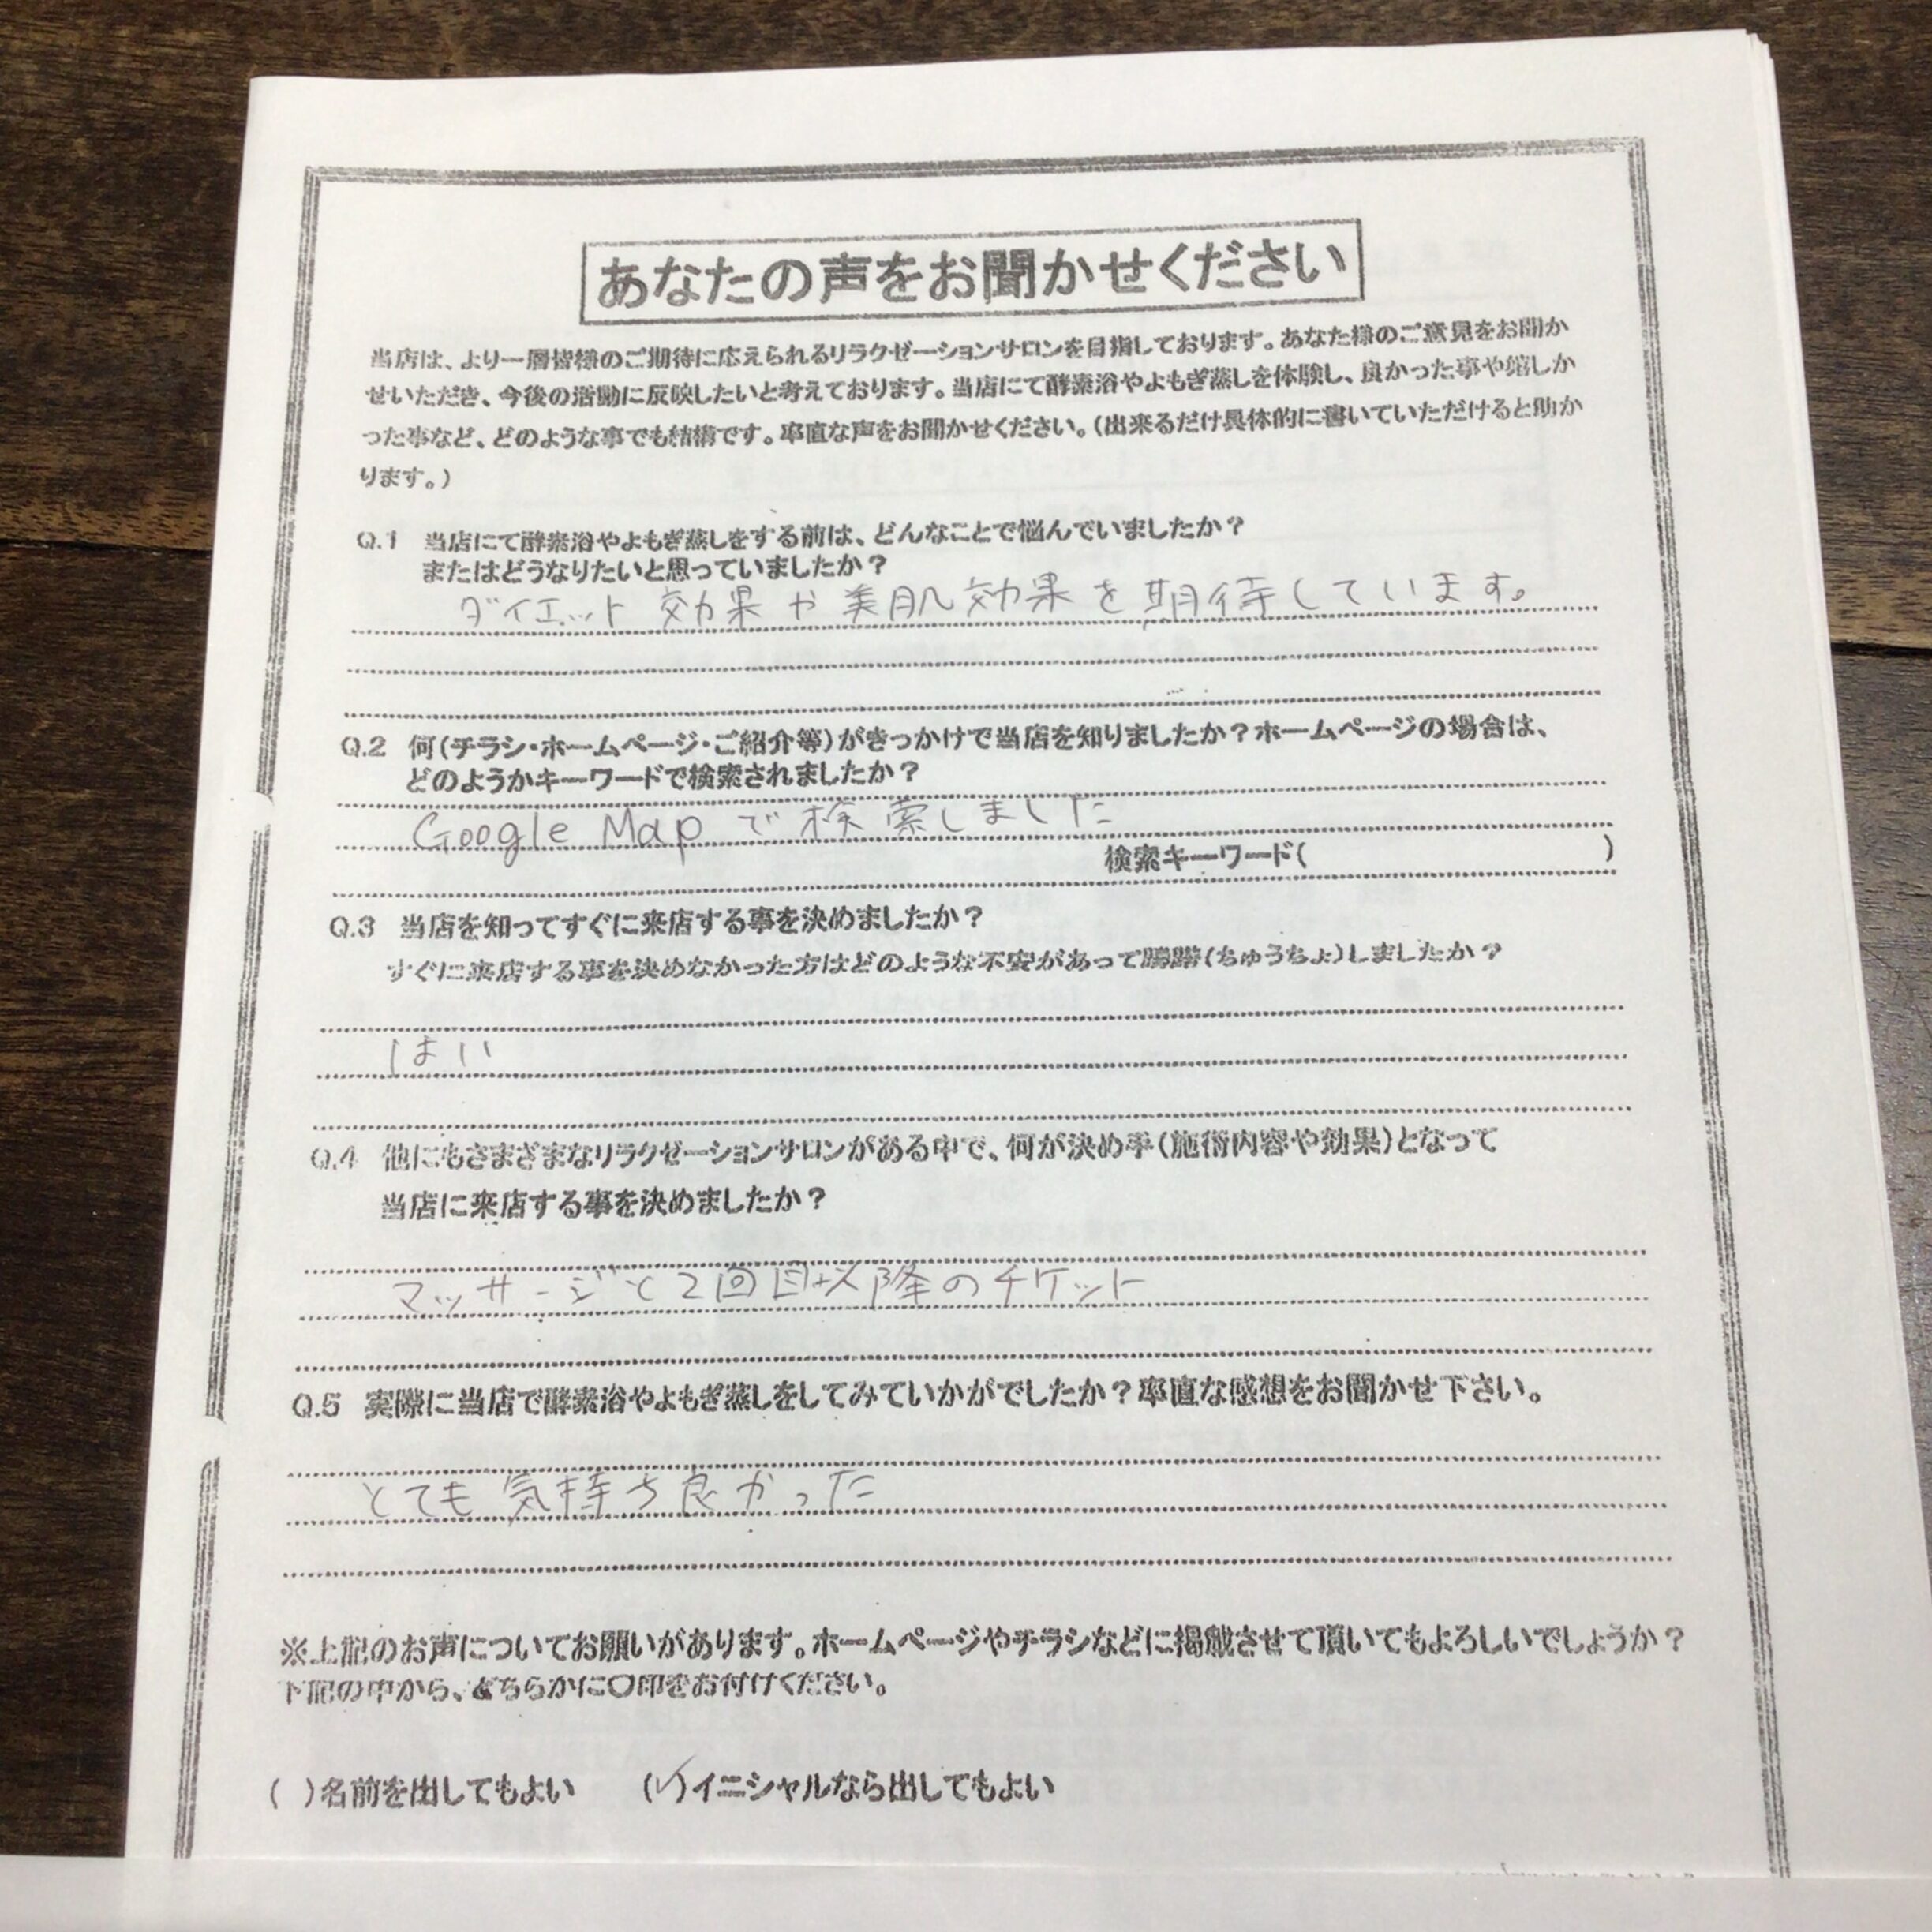 あなたの声をお聞かせください
当店は、より一層皆様のご期待に応えられるリラクゼーションサロンを目指しております。あなた様のご意見をお聞か
せいただき、今後の活動に反映したいと考えております。当店にて酵素浴やよもぎ蒸しを体験し、良かった事や嬉しか
った事など、どのような事でも結構です。率直な声をお聞かせください。(出来るだけ具体的に書いていただけると助か
ります。)
Q.1 当店にて酵素浴やよもぎ蒸しをする前は、どんなことで悩んでいましたか?
またはどうなりたいと思っていましたか?
ダイエット効果や美肌効果を期待しています。
Q.2 何(チラシ・ホームページ・ご紹介等)がきっかけで当店を知りましたか?ホームページの場合は、
どのようかキーワードで検索されましたか?
Google Mapで検索しました
検索キーワード( )
Q.3 当店を知ってすぐに来店する事を決めましたか?
すぐに来店する事を決めなかった方はどのような不安があって躊躇(ちゅうちょ)しましたか?
はい
Q.4 他にもさまざまなリラクゼーションサロンがある中で、何が決め手(施術内容や効果)となって
当店に来店する事を決めましたか?
マッサージと2回目以降のチケット
Q.5 実際に当店で酵素浴やよもぎ蒸しをしてみていかがでしたか?率直な感想をお聞かせ下さい。
とても気持ち良かった
※上記のお声についてお願いがあります。ホームページやチラシなどに掲載させて頂いてもよろしいでしょうか?
下記の中から、どちらかに〇印をお付けください。
( )名前を出してもよい (✓)イニシャルなら出してもよい